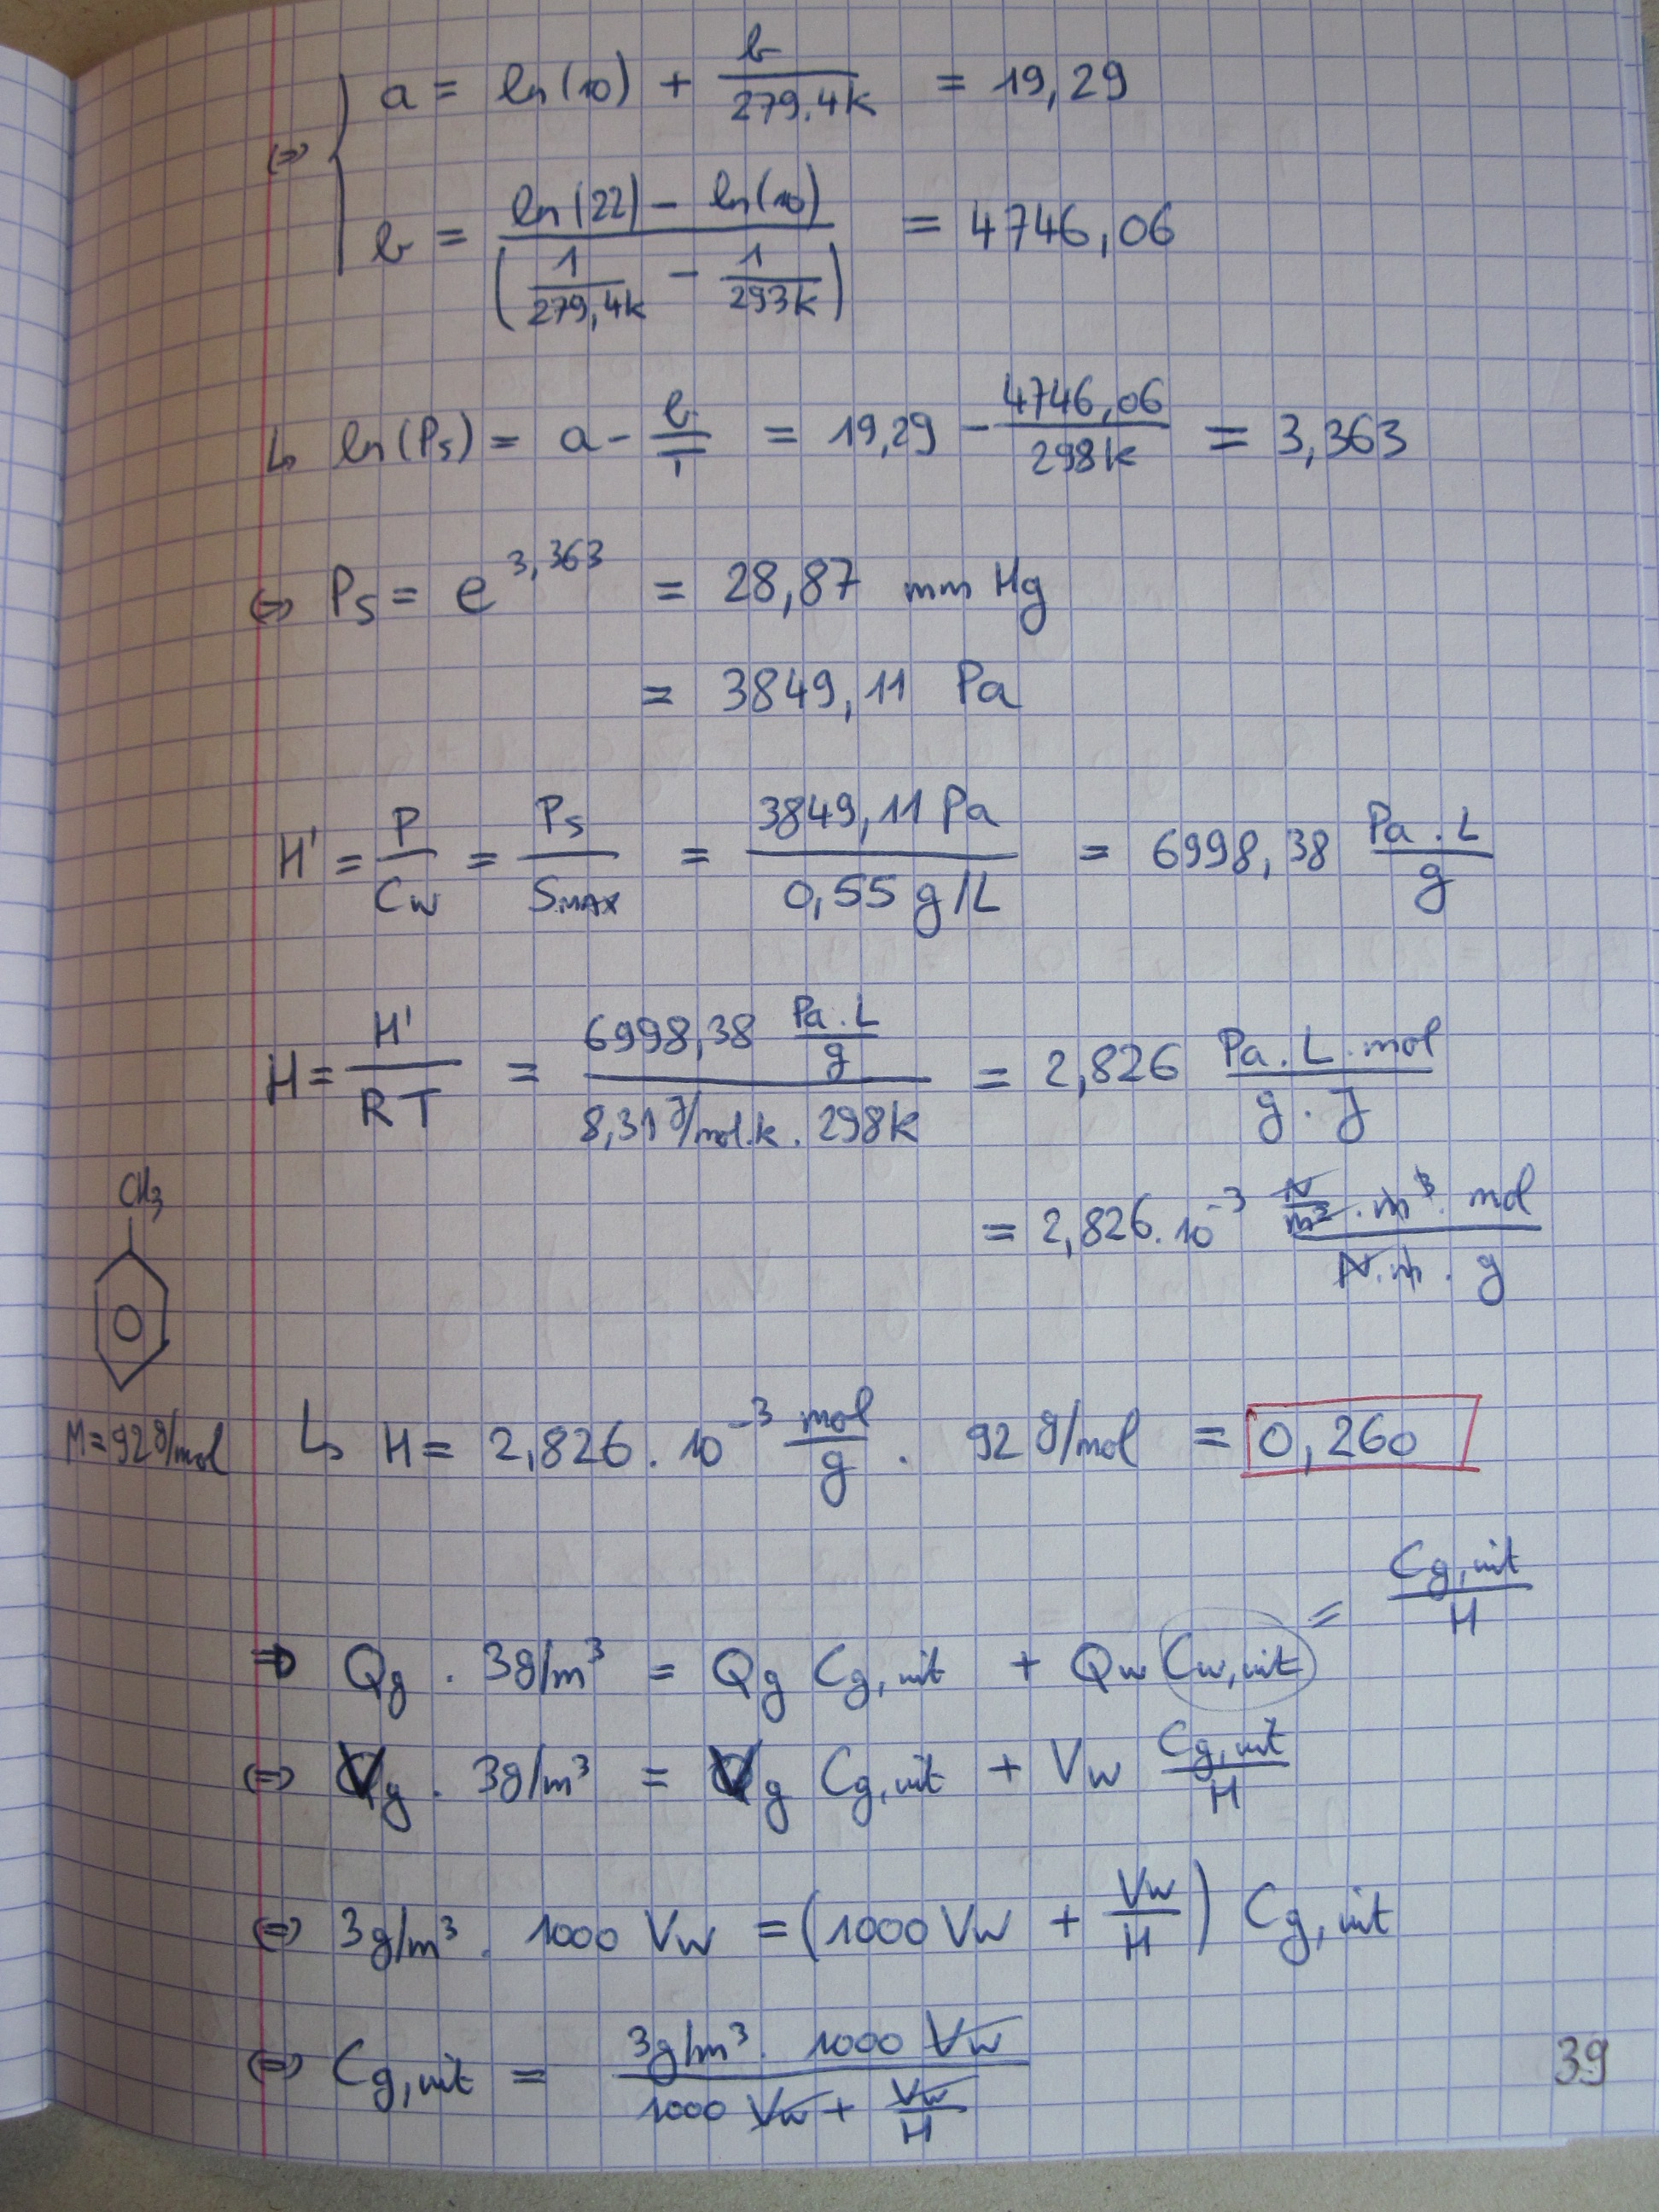 a = ln(10) + b/279,4k = 19,29
⇔
b = (ln(22) - ln(10))/(1/279,4k - 1/293k) = 4746,06
↳ ln(Ps) = a - b/T = 19,29 - 4746,06/298k = 3,363
⇔ Ps = e^3,363 = 28,87 mm Hg
= 3849,11 Pa
H' = P/Cw = Ps/SMAX = 3849,11 Pa/0,55 g/L = 6998,38 Pa.L/g
H = H'/RT = (6998,38 Pa.L/g)/(8,31 J/mol.k . 298k) = 2,826 Pa.L.mol/g.J
CH3
= 2,826.10^-3 (N/m² . m³ . mol)/(N.m . g)
M = 92 g/mol
↳ H = 2,826 . 10^-3 mol/g . 92 g/mol = 0,260
= Cg,uit/H
⇒ Qg . 3g/m³ = Qg Cg,uit + Qw Cw,uit
⇔ Vg . 3g/m³ = Vg Cg,uit + Vw Cg,uit/H
⇔ 3g/m³ . 1000 Vw = (1000 Vw + Vw/H) Cg,uit
⇔ Cg,uit = (3g/m³ . 1000 Vw)/(1000 Vw + Vw/H)
39